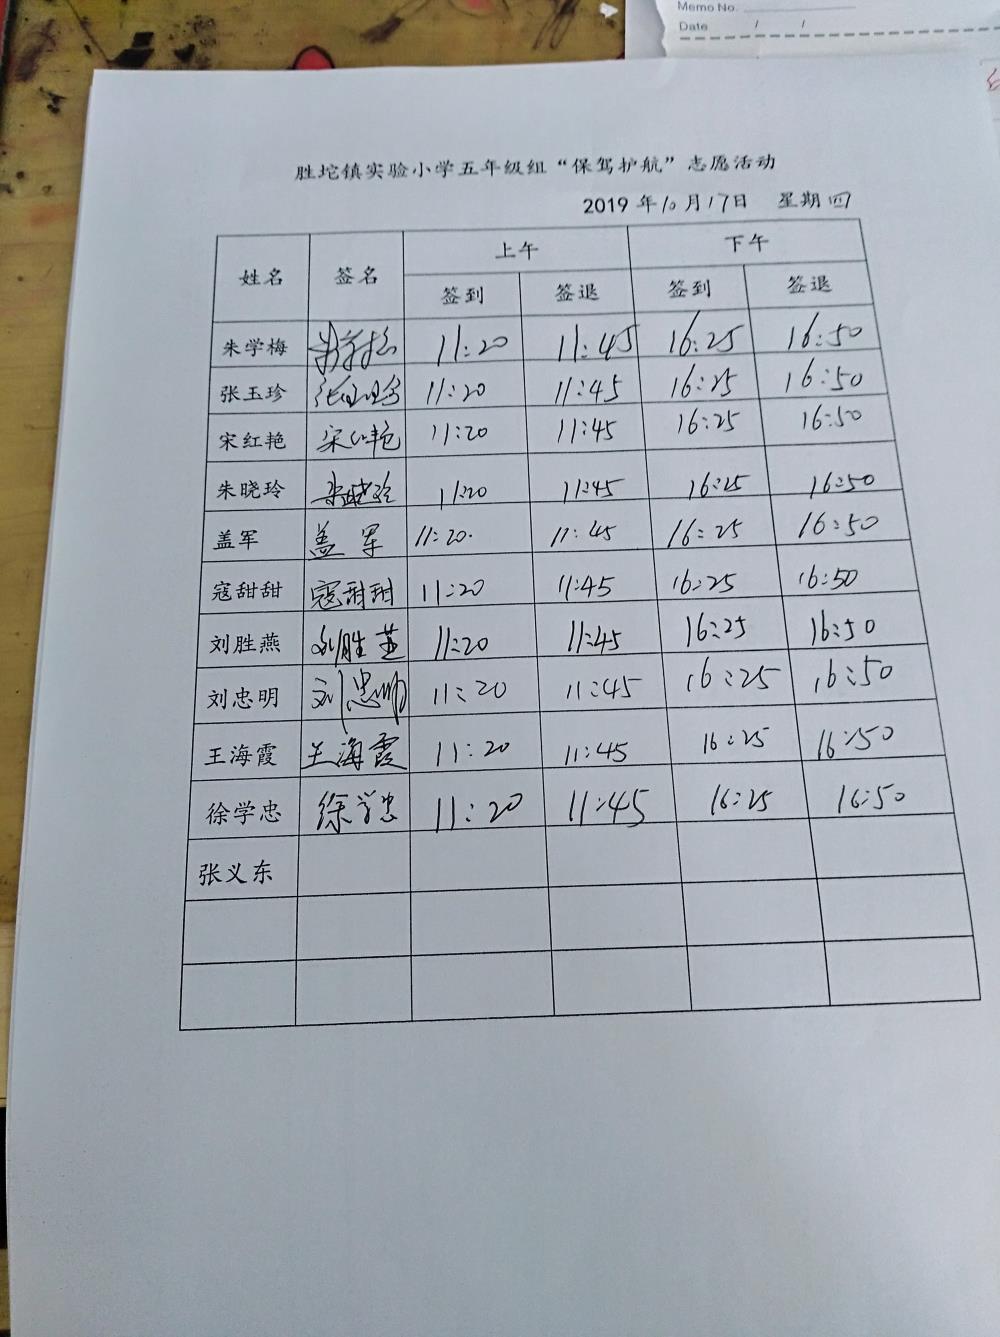 Memo No.
Date / /
胜坨镇实验小学五年级组“保驾护航”志愿活动
2019 年 10 月 17 日 星期四
姓名 签名 上午 下午
签到 签退 签到 签退
朱学梅 朱学梅 11:20 11:45 16:25 16:50
张玉珍 张玉珍 11:20 11:45 16:25 16:50
宋红艳 宋红艳 11:20 11:45 16:25 16:50
朱晓玲 朱晓玲 11:20 11:45 16:25 16:50
盖军 盖军 11:20. 11:45 16:25 16:50
寇甜甜 寇甜甜 11:20 11:45 16:25 16:50
刘胜燕 刘胜燕 11:20 11:45 16:25 16:50
刘忠明 刘忠明 11:20 11:45 16:25 16:50
王海霞 王海霞 11:20 11:45 16:25 16:50
徐学忠 徐学忠 11:20 11:45 16:25 16:50
张义东